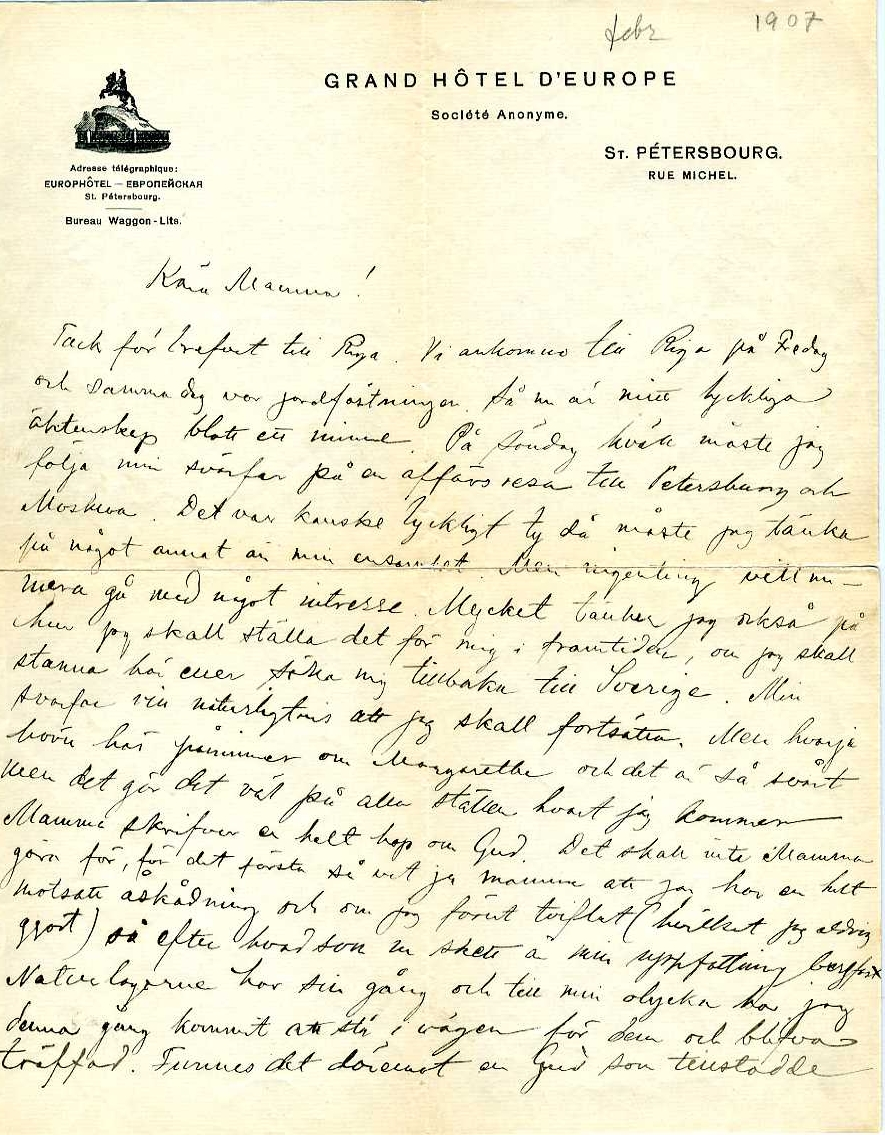 febr 1907
GRAND HÔTEL D'EUROPE
Société Anonyme.
ST. PÉTERSBOURG.
RUE MICHEL.
Adresse télégraphique:
EUROPHÔTEL — ЕВРОПЕЙСКАЯ
St. Pétersbourg.
Bureau Waggon-Lits.
Kära Mamma!
Tack för brefvet till Riga. Vi ankommo till Riga på Fredag
och samma dag var jordfästningen. Så nu är mitt lyckliga
äktenskap blott ett minne. På söndag kväll måste jag
följa min svärfar på en affärsresa till Petersburg och
Moskwa. Det var kanske lyckligt ty då måste jag tänka
på något annat än min ensamhet. Men ingenting vill nu-
mera gå med något intresse. Mycket tänker jag också på
hur jag skall ställa det för mig i framtiden, om jag skall
stanna här eller söka mig tillbaka till Sverige. Min
svärfar vill naturligtvis att jag skall fortsätta. Men hvarje
hörn här påminner om Margarethe och det är så svårt
men det gör det väl på alla ställen hvart jag kommer
Mamma skrifver en helt hop om Gud. Det skall inte Mamma
göra för, för det första så vet ju mamma att jag har en helt
motsatt åskådning och om jag förut tviflat (hvilket jag aldrig
gjort) så efter hvad som nu skett är min uppfattning bergfast
Naturlagarne har sin gång och till min olycka har jag
denna gång kommit att stå i vägen för dem och blifva
träffad. Funnes det däremot en Gud som tillstadde